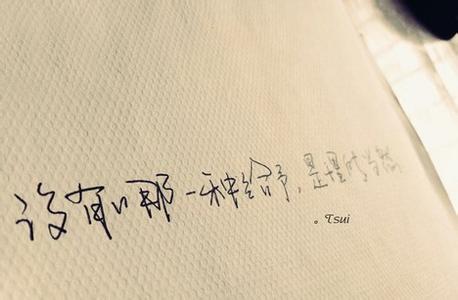 没有哪一种给予,是理所当然
。Tsui